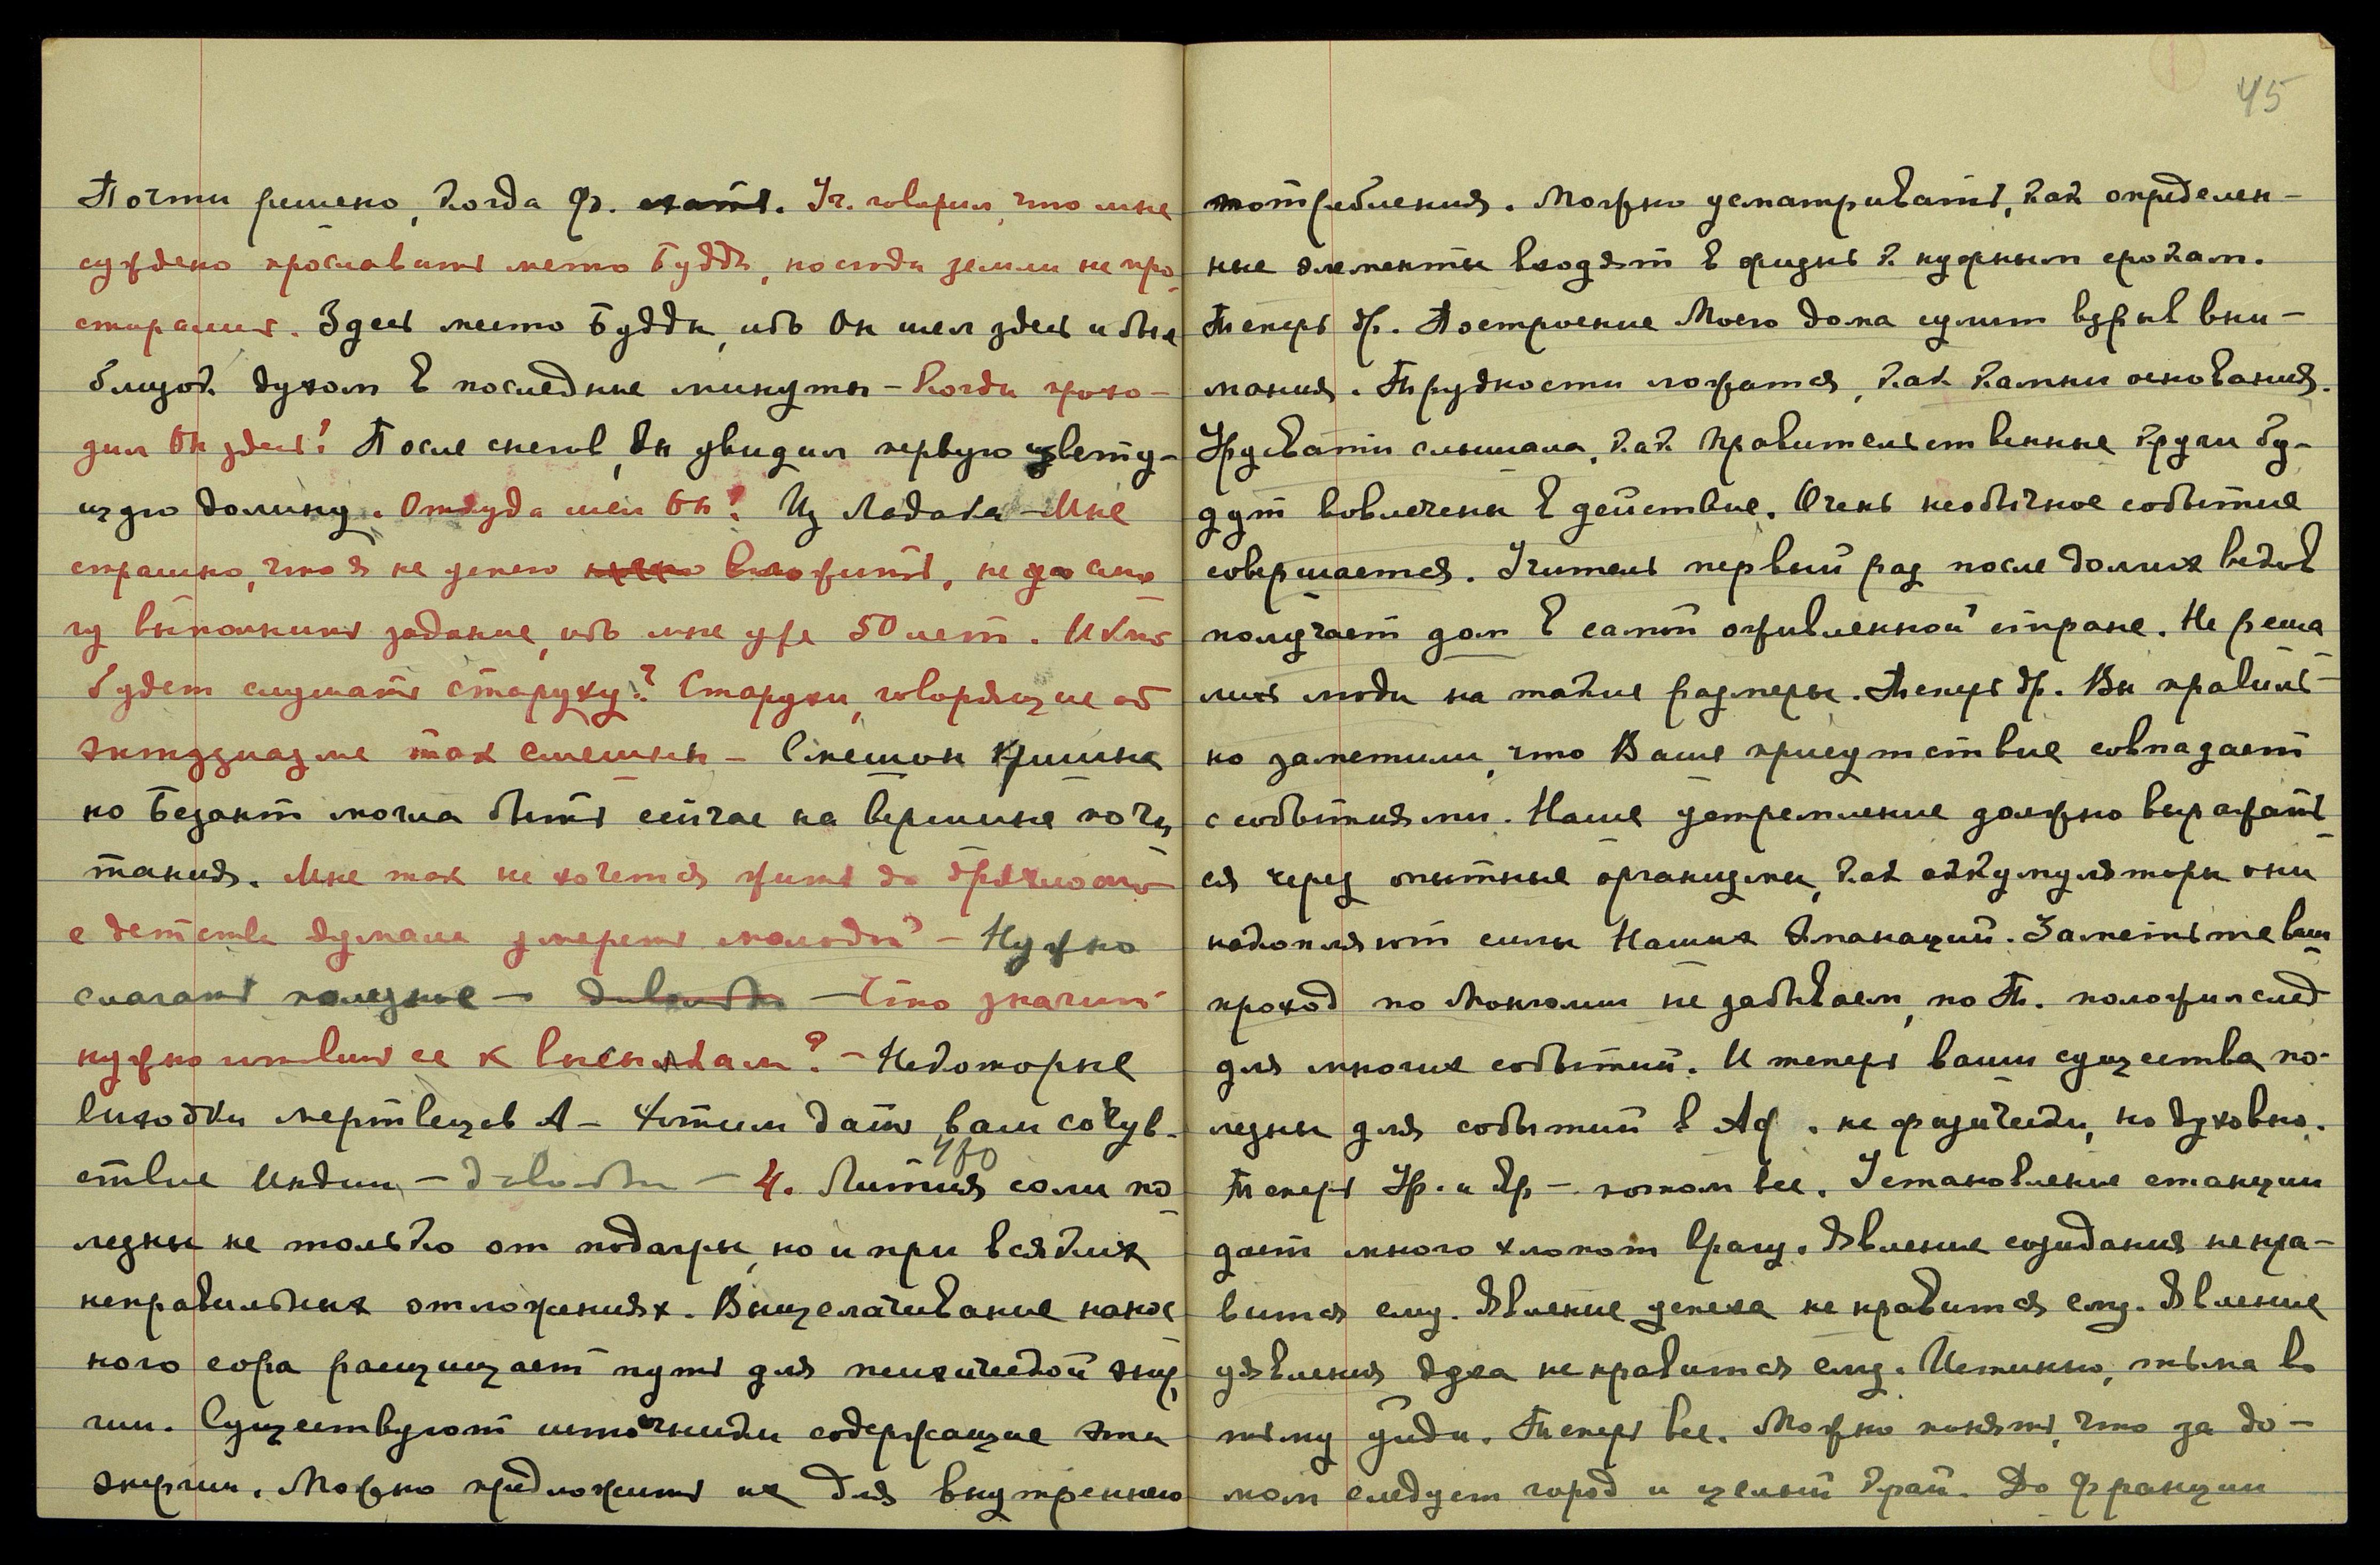 Почти решено, когда Ф. ехать. Уч. говорил, что мне
суждено прославить место Будды, но сюда земли не про-
стирались. Здесь место Будды, ибо Он шел здесь и был
близок духом в последние минуты – Когда прохо-
дил Он здесь? После снегов Он увидил первую цвету-
щую долину. Откуда шел Он? Из Ладака – Мне
страшно, что я не успею вложить, не смо-
гу выполнить задание, ибо мне уже 50 лет. И кто
будет слушать старуху? Старухи, говорящие об
энтузиазме так смешны – Смешон Кришна
но Безант могла быть сейчас на вершине поче-
тания. Мне так не хочется жить до дряхлости
с детства думала умереть молодой – Нужно
слагать полезное – довольно – Что значит
нужно отвить ее к ? – Некоторые
выходки мертвецов А – Хотим дать вам сочув-
ствие Индии – довольно –
490
4. Лития соли по-
лезны не только от подагры, но и при всяких
неправильных отложениях. Выщелачивание нанос
ного сора расчищает путь для психической энер
гии. Существуют источники содержащие эти
энергии. Можно предложить их для внутреннего
45
потребления. Можно усматривать, как определен-
ные элементы входят в жизнь к нужным срокам.
Теперь др. Построение Моего дома сулит взрыв вни-
мания. Трудности ложатся, как камни основания.
Урусвати слышала, как правительственные круги бу-
дут вовлечены в действие. Очень необычное событие
совершается. Учитель первый раз после долгих веков
получает дом в самой оживленной стране. Не реша
лись люди на такие размеры. Теперь др. Вы правиль-
но заметили, что Ваше присутствие совпадает
с событиями. Наше устремление должно выражать-
ся через опытные организмы, как аккумуляторы они
накопляют силы Наших Эманаций. Заметьте ваш
проход по Монголии не забываем, но Т. положил след
для многих событий. И теперь ваши существа по-
лезны для событий в Аф. не физически, но духовно.
Теперь Ур. и Др – потом все. Установление станции
дает много хлопот врагу. Явление созидания не нра-
вится ему. Явление успеха не нравится ему. Явление
уявления духа не нравится ему. Истинно, тьма во
тьму уйди. Теперь все. Можно понять, что за до-
мом следует город и целый край. До Франции